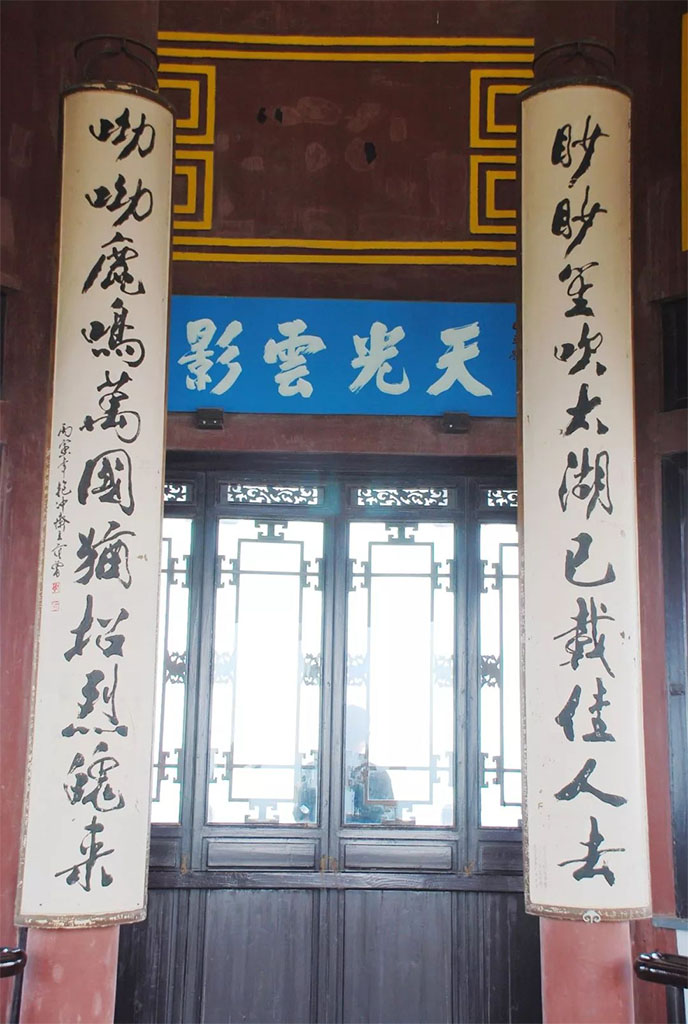 天光雲影
眇眇笙吹太湖已載佳人去
呦呦鹿鳴萬國猶招烈魄來
丙寅